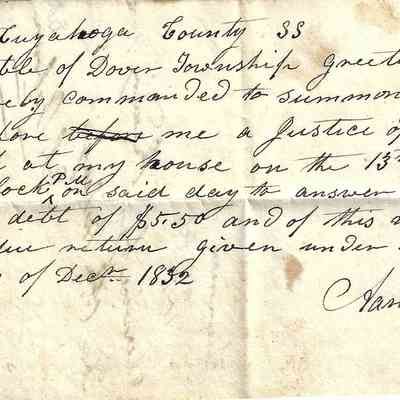 Cuyahoga County SS
ble of Dover Township Greeti
eby commanded to summon
fore before me a Justice of
at my house on the 13th
lock PM on said day to answer
debt of $5.50 and of this
due return given under
of Decr 1832
Aar